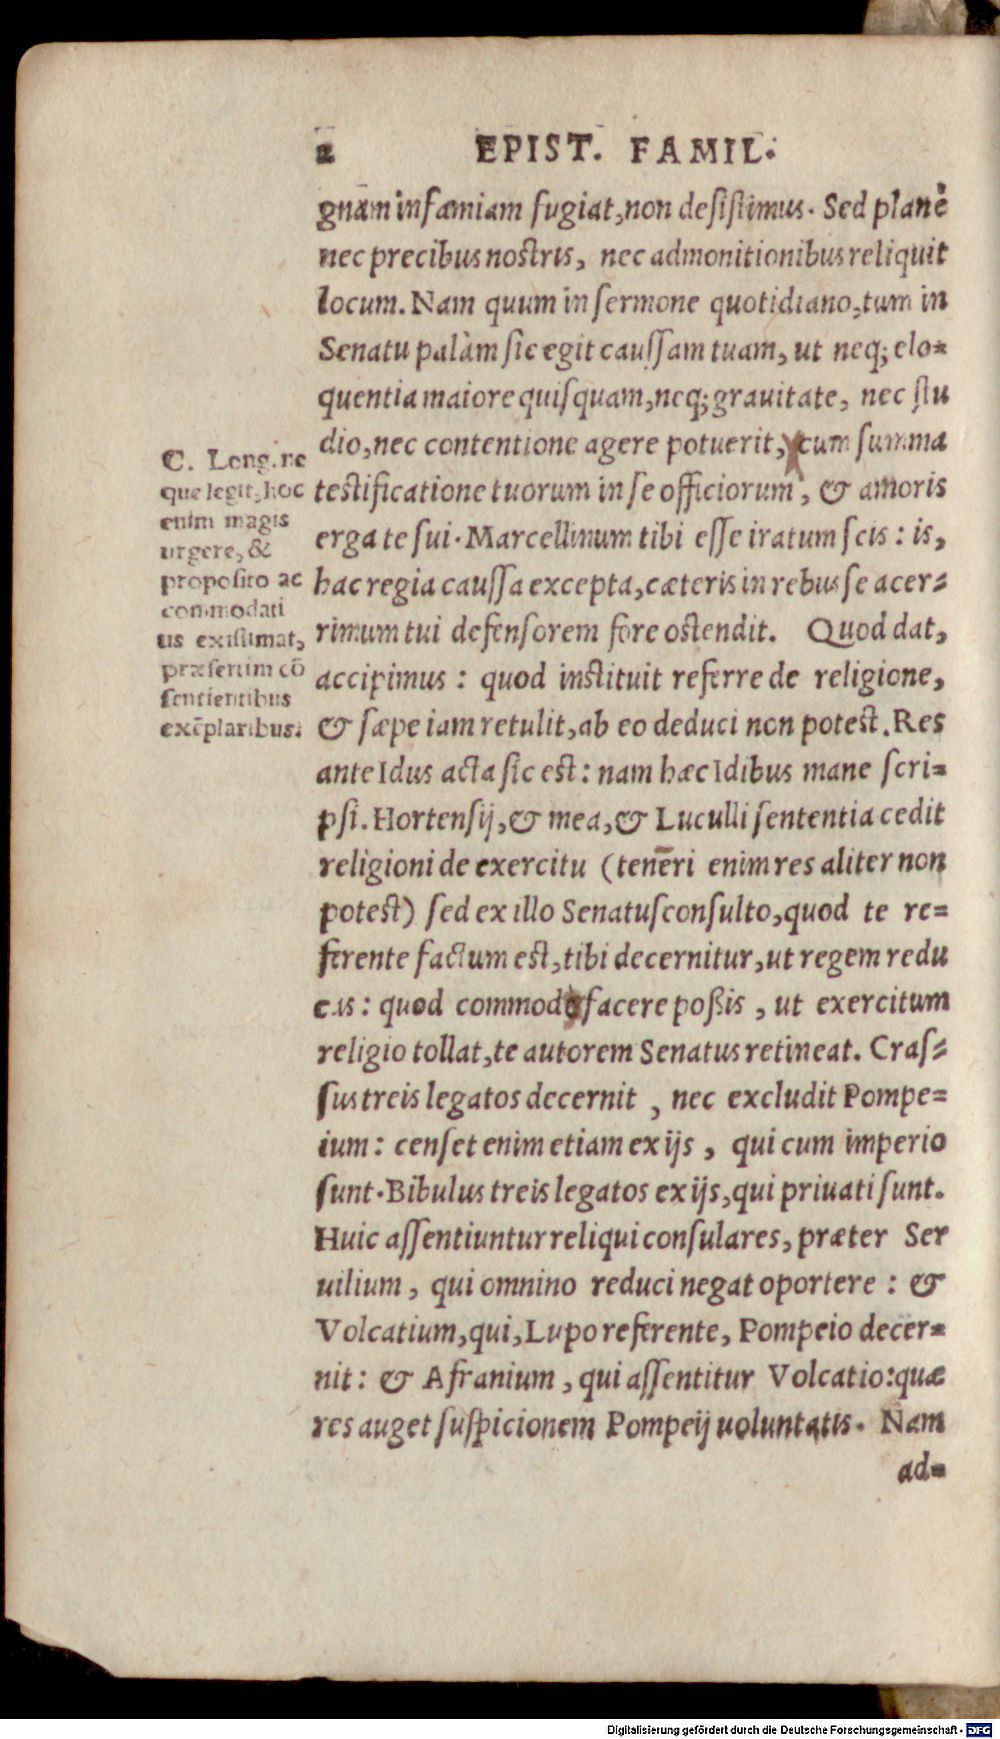 2 EPIST. FAMIL.
gnam infamiam fugiat, non desistimus. Sed planè
nec precibus nostris, nec admonitionibus reliquit
locum. Nam quum in sermone quotidiano, tum in
Senatu palàm sic egit caussam tuam, ut neq; elo-
quentia maiore quisquam, neq; grauitate, nec stu
dio, nec contentione agere potuerit, cum summa
testificatione tuorum in se officiorum, & amoris
erga te sui. Marcellinum tibi esse iratum scis: is,
hac regia caussa excepta, cæteris in rebus se acer-
rimum tui defensorem fore ostendit. Quod dat,
accipimus: quod instituit referre de religione,
& sæpe iam retulit, ab eo deduci non potest. Res
ante Idus acta sic est: nam hæc Idibus mane scri-
psi. Hortensij, & mea, & Luculli sententia cedit
religioni de exercitu (teneri enim res aliter non
potest) sed ex illo Senatusconsulto, quod te re-
ferente factum est, tibi decernitur, ut regem redu
cas: quod commodo facere poßis, ut exercitum
religio tollat, te autorem Senatus retineat. Cras-
sus treis legatos decernit, nec excludit Pompe-
ium: censet enim etiam ex ijs, qui cum imperio
sunt. Bibulus treis legatos ex ijs, qui priuati sunt.
Huic assentiuntur reliqui consulares, præter Ser
uilium, qui omnino reduci negat oportere: &
Volcatium, qui, Lupo referente, Pompeio decer-
nit: & Afranium, qui assentitur Volcatio: quæ
res auget suspicionem Pompeij uoluntatis. Nam
ad-
C. Long. ne
que legit, hoc
enim magis
urgere, &
proposito ac
commodati
us existimat,
præsertim cō
sentientibus
exēplaribus.
Digitalisierung gefördert durch die Deutsche Forschungsgemeinschaft - DFG